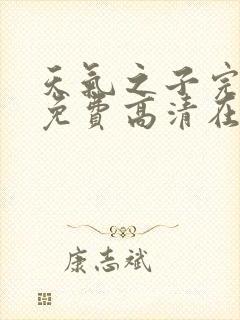 天氣之子完
免費高清在
康志斌